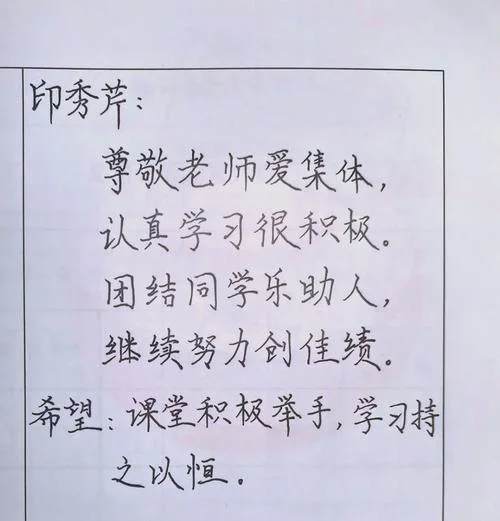 印秀芹:
尊敬老师爱集体,
认真学习很积极。
团结同学乐助人,
继续努力创佳绩。
希望:课堂积极举手,学习持
之以恒。